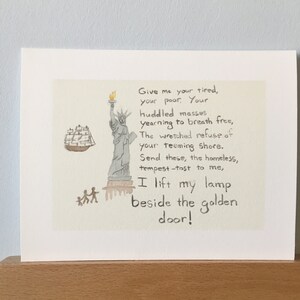 Give me your tired,
your poor. Your
huddled masses
yearning to breath free,
The wretched refuse of
your teeming shore.
Send these, the homeless,
tempest-tost to me,
I lift my lamp
beside the golden
door!